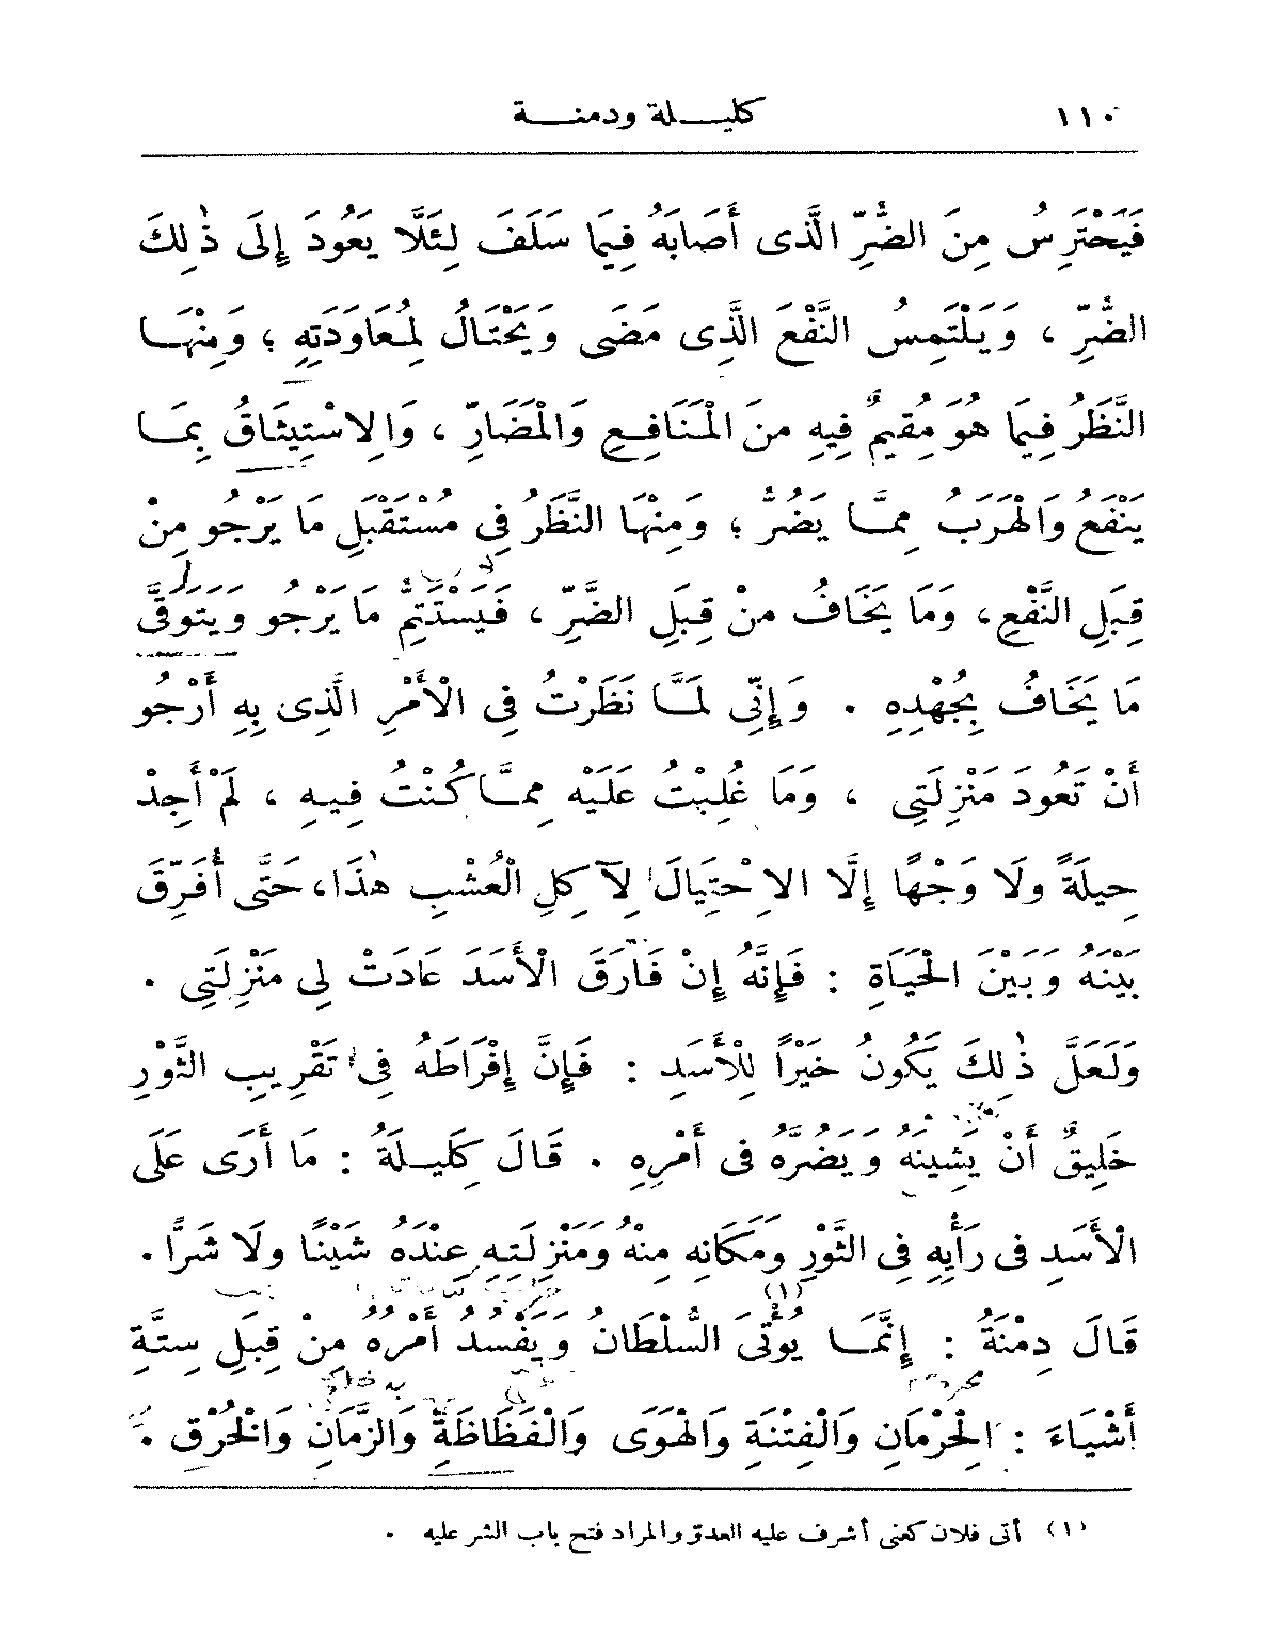 ١١٠ كليلة ودمنة
فَيَحْتَرِسُ مِنَ الضُّرِّ الَّذِى أَصَابَهُ فِيمَا سَلَفَ لِئَلَّا يَعُودَ إِلَى ذٰلِكَ
الضُّرِّ ، وَيَلْتَمِسُ النَّفْعَ الَّذِى مَضَى وَيَحْتَالُ لِمُعَاوَدَتِهِ ؛ وَمِنْهَا
النَّظَرُ فِيمَا هُوَ مُقِيمٌ فِيهِ مِنَ الْمَنَافِعِ وَالْمَضَارِّ ، وَالِاسْتِيثَاقُ بِمَا
يَنْفَعُ وَالْهَرَبُ مِمَّا يَضُرُّ ؛ وَمِنْهَا النَّظَرُ فِى مُسْتَقْبَلِ مَا يَرْجُو مِنْ
قِبَلِ النَّفْعِ ، وَمَا يَخَافُ مِنْ قِبَلِ الضُّرِّ ، فَيَسْتَتِمُّ مَا يَرْجُو وَيَتَوَقَّى
مَا يَخَافُ بِجُهْدِهِ . وَإِنِّى لَمَّا نَظَرْتُ فِى الْأَمْرِ الَّذِى بِهِ أَرْجُو
أَنْ تَعُودَ مَنْزِلَتِى ، وَمَا غُلِبْتُ عَلَيْهِ مِمَّا كُنْتُ فِيهِ ، لَمْ أَجِدْ
حِيلَةً وَلَا وَجْهًا إِلَّا الِاحْتِيَالَ لِآكِلِ الْعُشْبِ هٰذَا، حَتَّى أُفَرِّقَ
بَيْنَهُ وَبَيْنَ الْحَيَاةِ : فَإِنَّهُ إِنْ فَارَقَ الْأَسَدَ عَادَتْ لِى مَنْزِلَتِى .
وَلَعَلَّ ذٰلِكَ يَكُونُ خَيْرًا لِلْأَسَدِ : فَإِنَّ إِفْرَاطَهُ فِى تَقْرِيبِ الثَّوْرِ
خَلِيقٌ أَنْ يَشِينَهُ وَيَضُرَّهُ فِى أَمْرِهِ . قَالَ كَلِيلَةُ : مَا أَرَى عَلَى
الْأَسَدِ فِى رَأْيِهِ فِى الثَّوْرِ وَمَكَانِهِ مِنْهُ وَمَنْزِلَتِهِ عِنْدَهُ شَيْنًا وَلَا شَرًّا .
قَالَ دِمْنَةُ : إِنَّمَا يُؤْتَى (١) السُّلْطَانُ وَيَفْسُدُ أَمْرُهُ مِنْ قِبَلِ سِتَّةِ
أَشْيَاءَ : الْحِرْمَانِ وَالْفِتْنَةِ وَالْهَوَى وَالْفَظَاظَةِ وَالزَّمَانِ وَالْخُرْقِ .
(١) أتى فلان كعنى أشرف عليه العدوّ والمراد فتح باب الشر عليه .